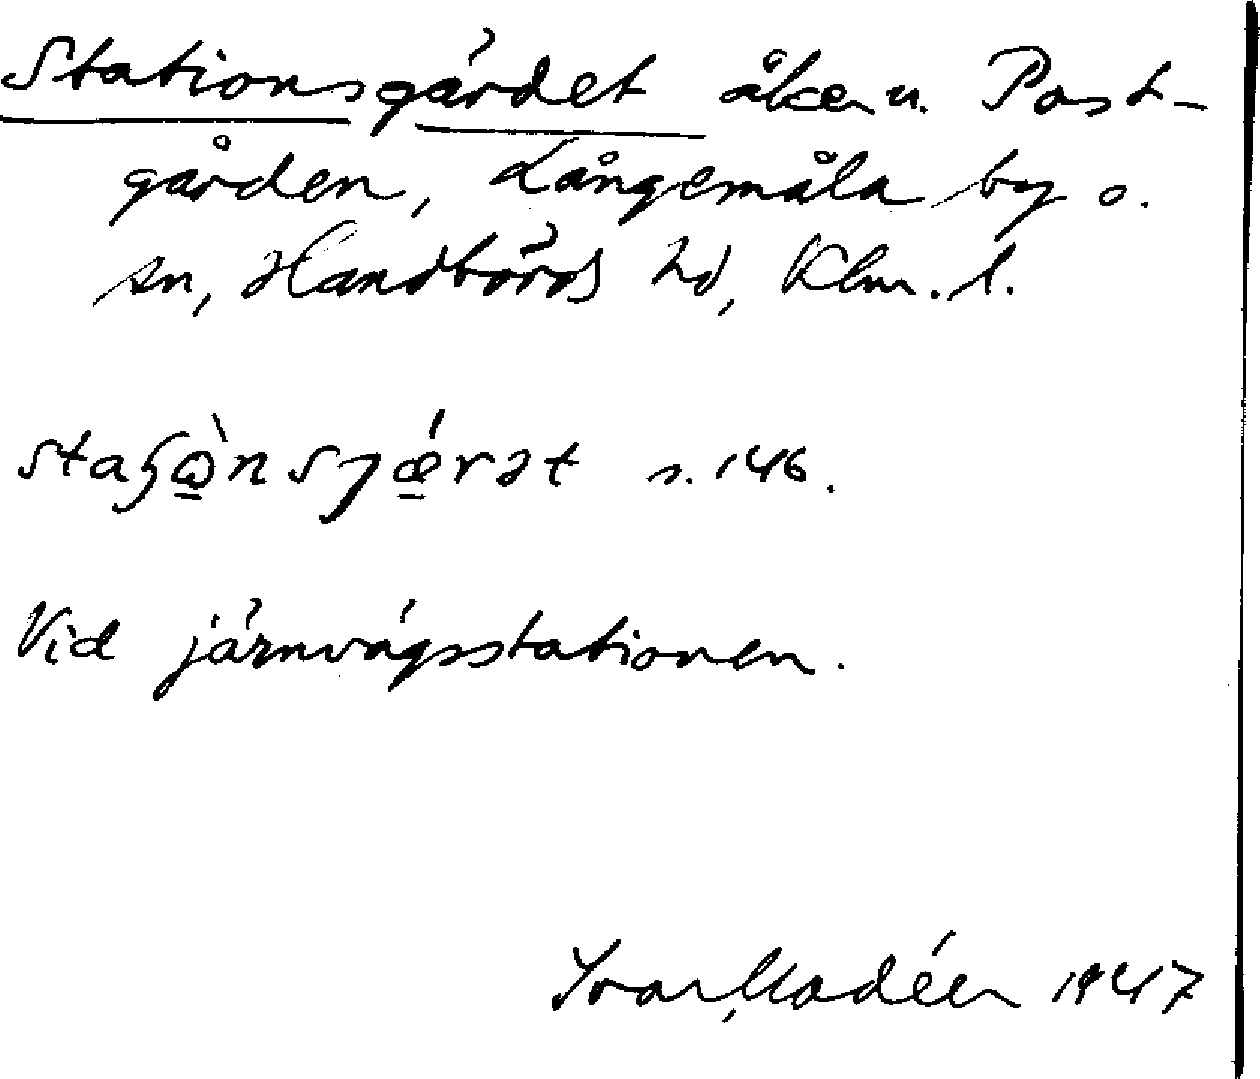 Stationsgärdet åker u. Post-
gården, Långemåla by o.
sn, Handbörds hd, Klm. l.
staʃὼnsɟǽrət s. 146.
Vid järnvägsstationen.
Ivar Modéer 1947